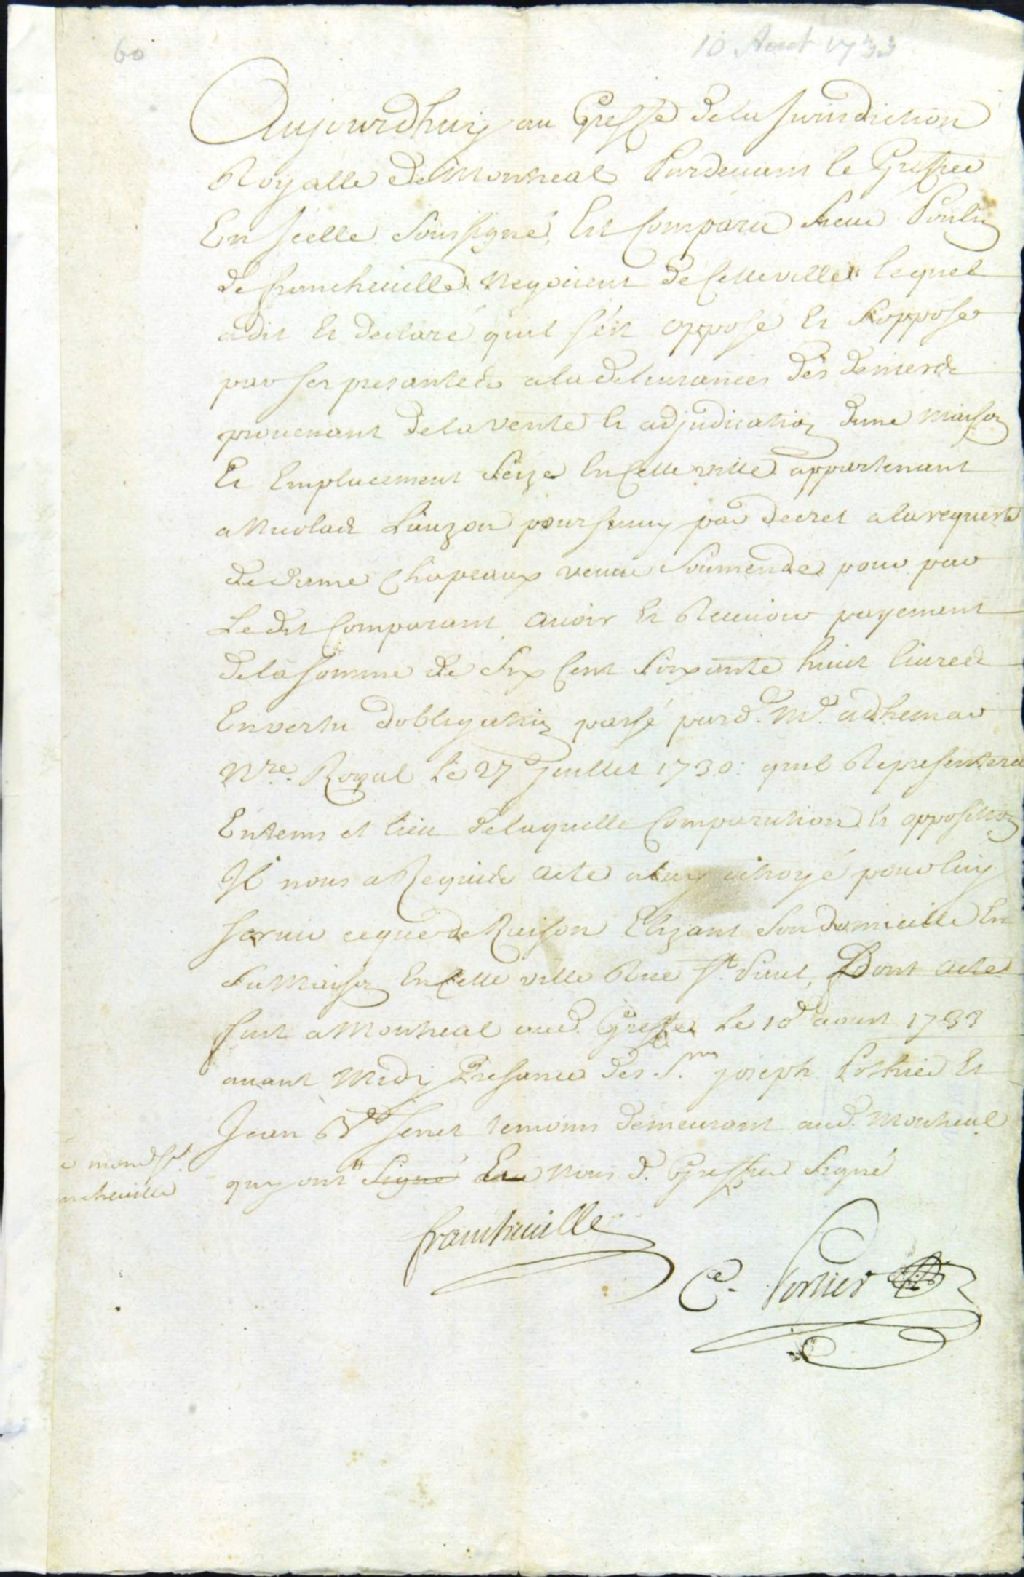 60
10 Aout 1733
Aujourdhuy au Greffe de la Jurisdiction
Royalle de Montreal Pardevant le Greffier
En Icelle Soussigné, Est Comparu Sieur Poulin
de francheville Negociant de Cette ville lequel
a dit Et declaré quil s'est opposé Et s'oppose
par Ses presantes a la delivrances des deniers
provenant de la vente Et adjudication dune Maison
Et Emplacement Seize En Cette ville appartenant
a Nicolas Lauzon poursuivy par decret a la requeste
de dame Chapeaux veuve Soumende pour par
Le dit Comparant avoir Et Recevoir payement
de la somme de Six Cent Soixante huit livres
En vertu dobligation passé pard. Me. adhemar
Nre. Royal le 27 Juillet 1730. quil Representera
En tems et lieu de laquelle Comparution Et opposition
Il nous a Requis acte a luy octroyé pour luy
servir ce que de Raison Elizant Son domicille En
Sa Maison En Cette ville Rue St. Paul, Dont acte
fait a Montreal aud. Greffe Le 10e aoust 1733
avant Midi Presance des Srs. joseph Pothier Et
Jean Bte senet temoins demeurant aud. Montreal
qui ont Signé Et Nous d. Greffier Signé
mond. Sr.
francheville
C. Porlier